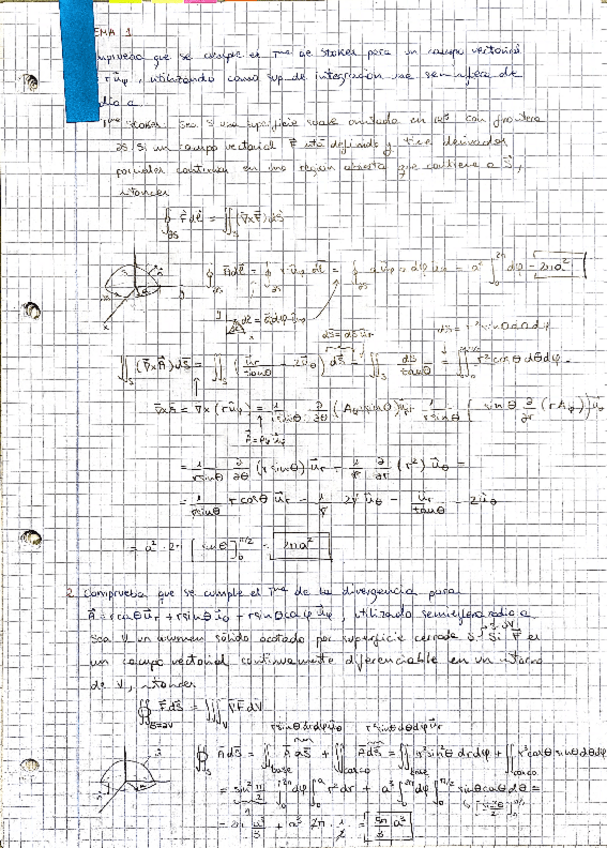 EMA 1
mprueba que se cumple el Tma de Stokes para un campo vectorial
r ûφ, utilizando como sup. de integración una semiesfera de
dio a.
Tma Stokes: Sea S una superficie suave acotada en con frontera
∂S. Si un campo vectorial F está definido y tiene derivadas
parciales continuas en una región abierta que contiene a S,
entonces
∮∂S F dl = ∬S (∇×F) dS
∮∂S A dl = ∮∂S r ûφ dl = ∮∂S a ûφ a dφ = a² ∫0 2π dφ = 2πa²
dl = a dφ
dS = dS ûr
dS = r² sinθ dθ dφ
∬S (∇×A) dS = ∬S (ûr/tanθ − 2ûθ) dS = ∬S dS/tanθ = ∬S r² cosθ dθ dφ =
∇×A = ∇×(r ûφ) = 1/(r sinθ) ∂/∂θ (Aφ sinθ) ûr − 1/(r sinθ) ( sinθ ∂/∂r (r Aφ)) ûθ
= 1/(r sinθ) ∂/∂θ (r sinθ) ûr − 1/r ∂/∂r (r²) ûθ =
= 1/(r sinθ) r cosθ ûr − 1/r 2r ûθ = ûr/tanθ − 2ûθ
= a² · 2π [sinθ]0 π/2 = 2πa²
2. Comprueba que se cumple el Tma de la divergencia para
A = r cosθ ûr + r sinθ ûθ + r sinθ cos φ ûφ, utilizado semiesfera radio a
Sea V un volumen sólido acotado por superficie cerrada S. Si F es
un campo vectorial continuamente diferenciable en un entorno
de V, entonces
∯S=∂V F dS = ∭V ∇F dV
r sinθ dr dφ ûθ r² sinθ dθ dφ ûr
∯S A dS = ∬base A dS + ∬casco A dS = ∬base r² sin²θ dr dφ + ∬casco r³ cosθ sinθ dθ dφ
= sin² π/2 ∫0 2π dφ ∫0 a r² dr + a³ ∫0 2π dφ ∫0 π/2 sinθ cosθ dθ =
[sin²θ/2]0 π/2
= 2π a³/3 + a³ 2π 1/2 = 5π/3 a³